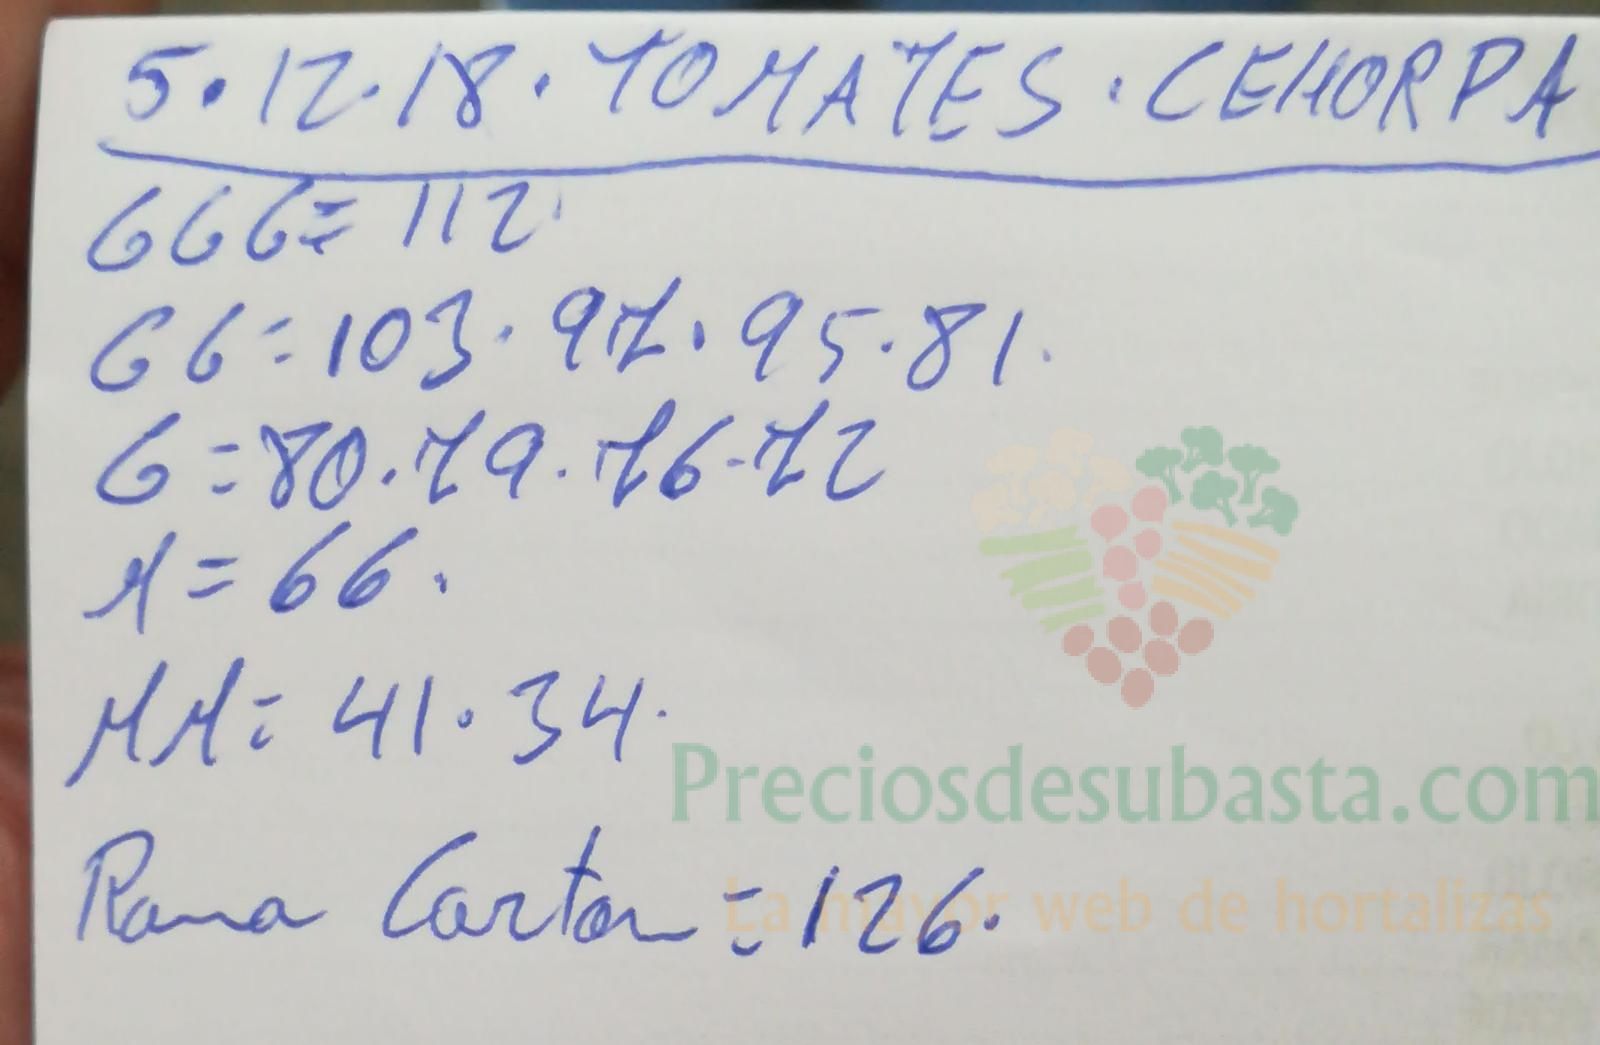 5.12.18. TOMATES. CEHORPA
GGG= 112.
GG= 103. 97. 95. 81.
G= 80. 79. 76-72
M= 66.
MM= 41. 34.
Rama Carton = 126.
Preciosdesubasta.com
La mayor web de hortalizas